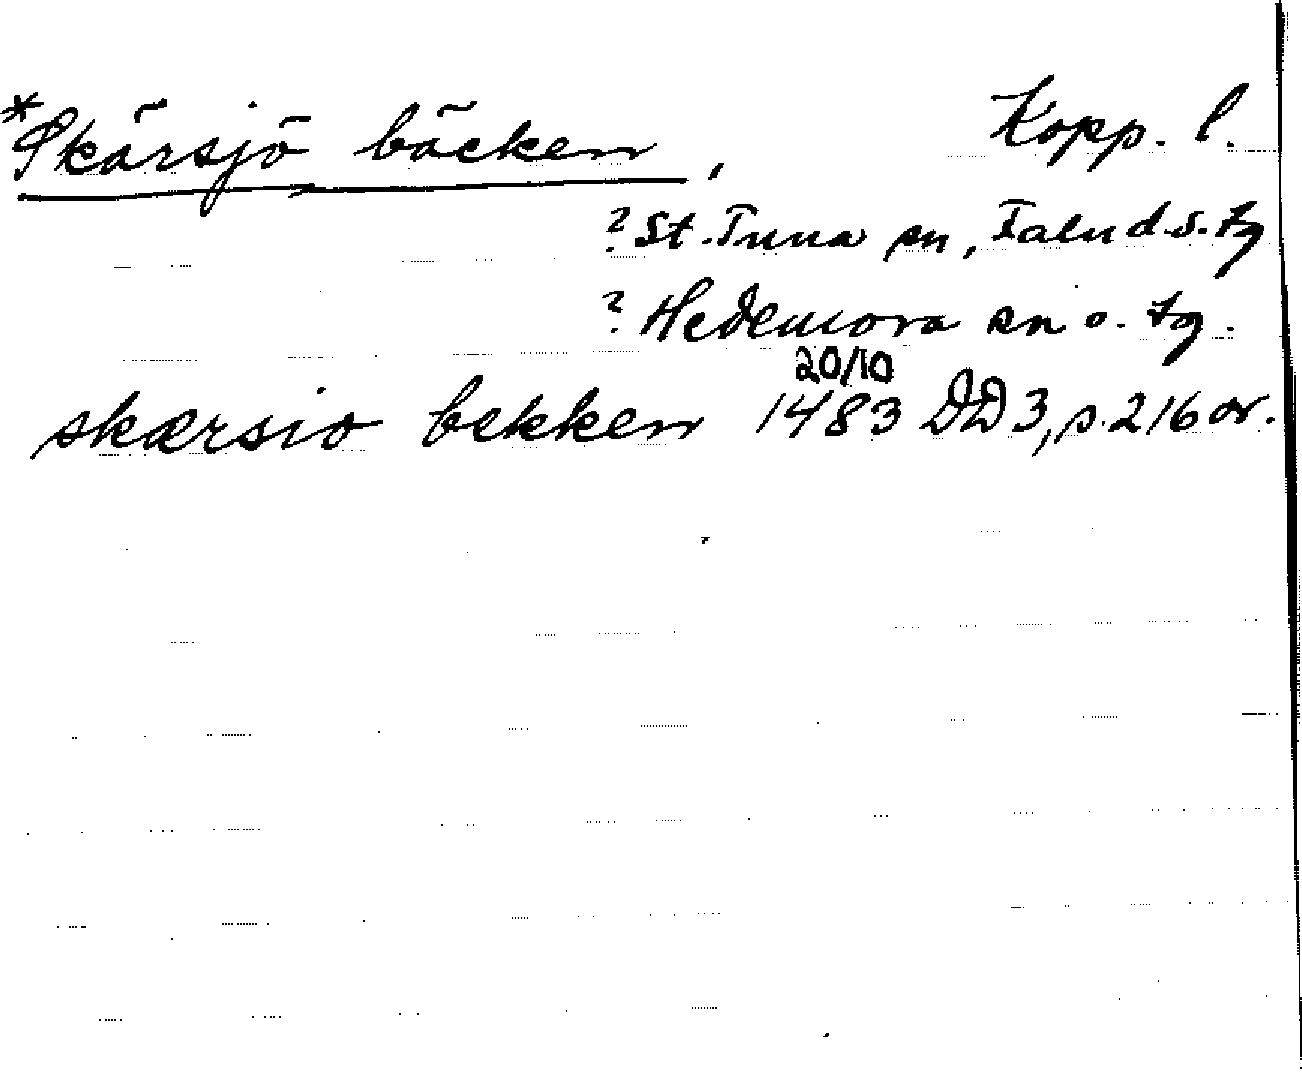 *Skärsjö bäcken, Kopp. l.
? St. Tuna sn, Falu d.s. tg
? Hedemora sn o. tg.
skærsio bekken 20/10 1483 DD 3, s. 216 or.